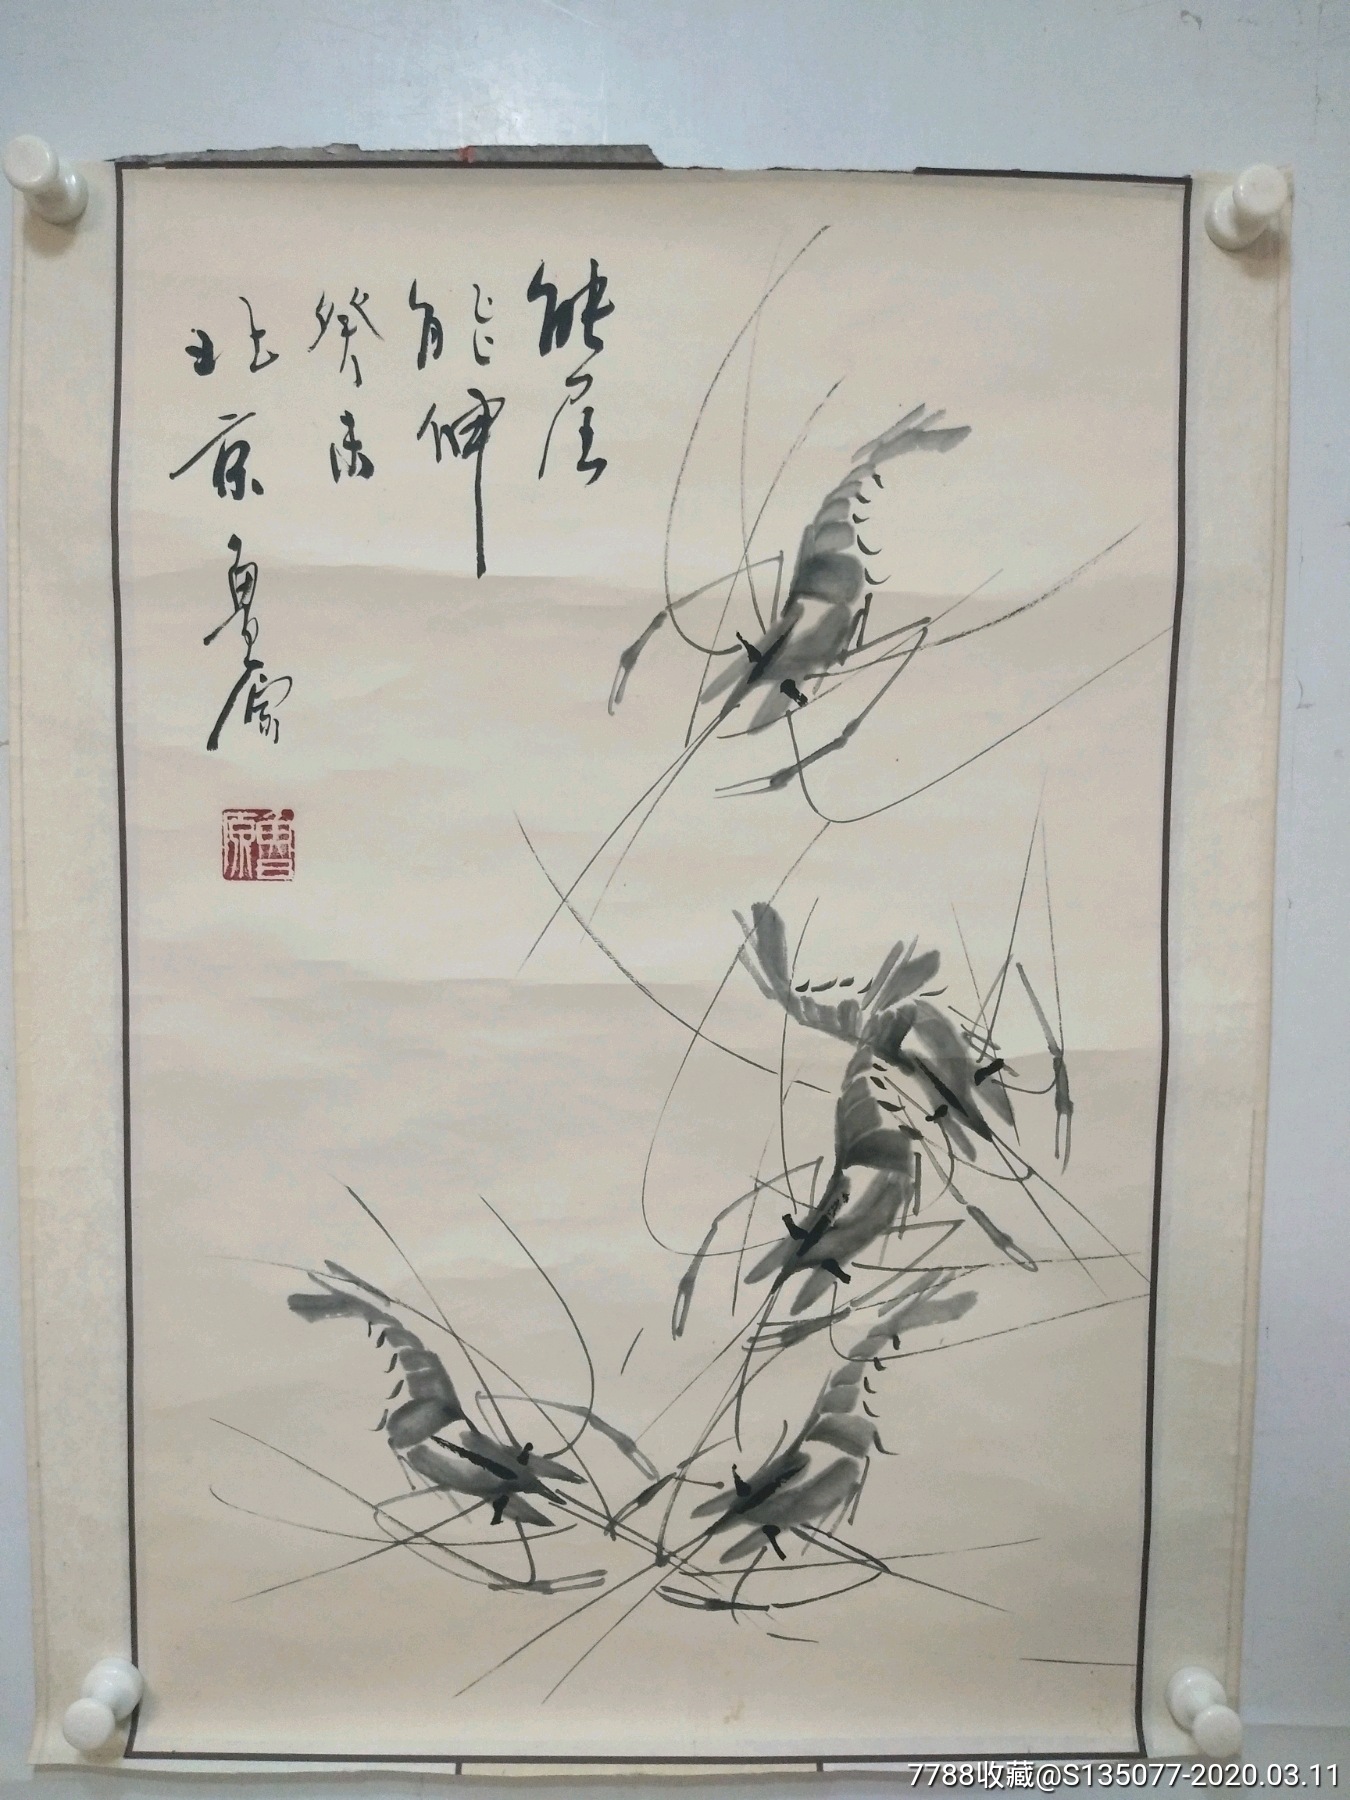 能屈
能伸
癸未
北京魯原
魯原
7788收藏@S135077-2020.03.11